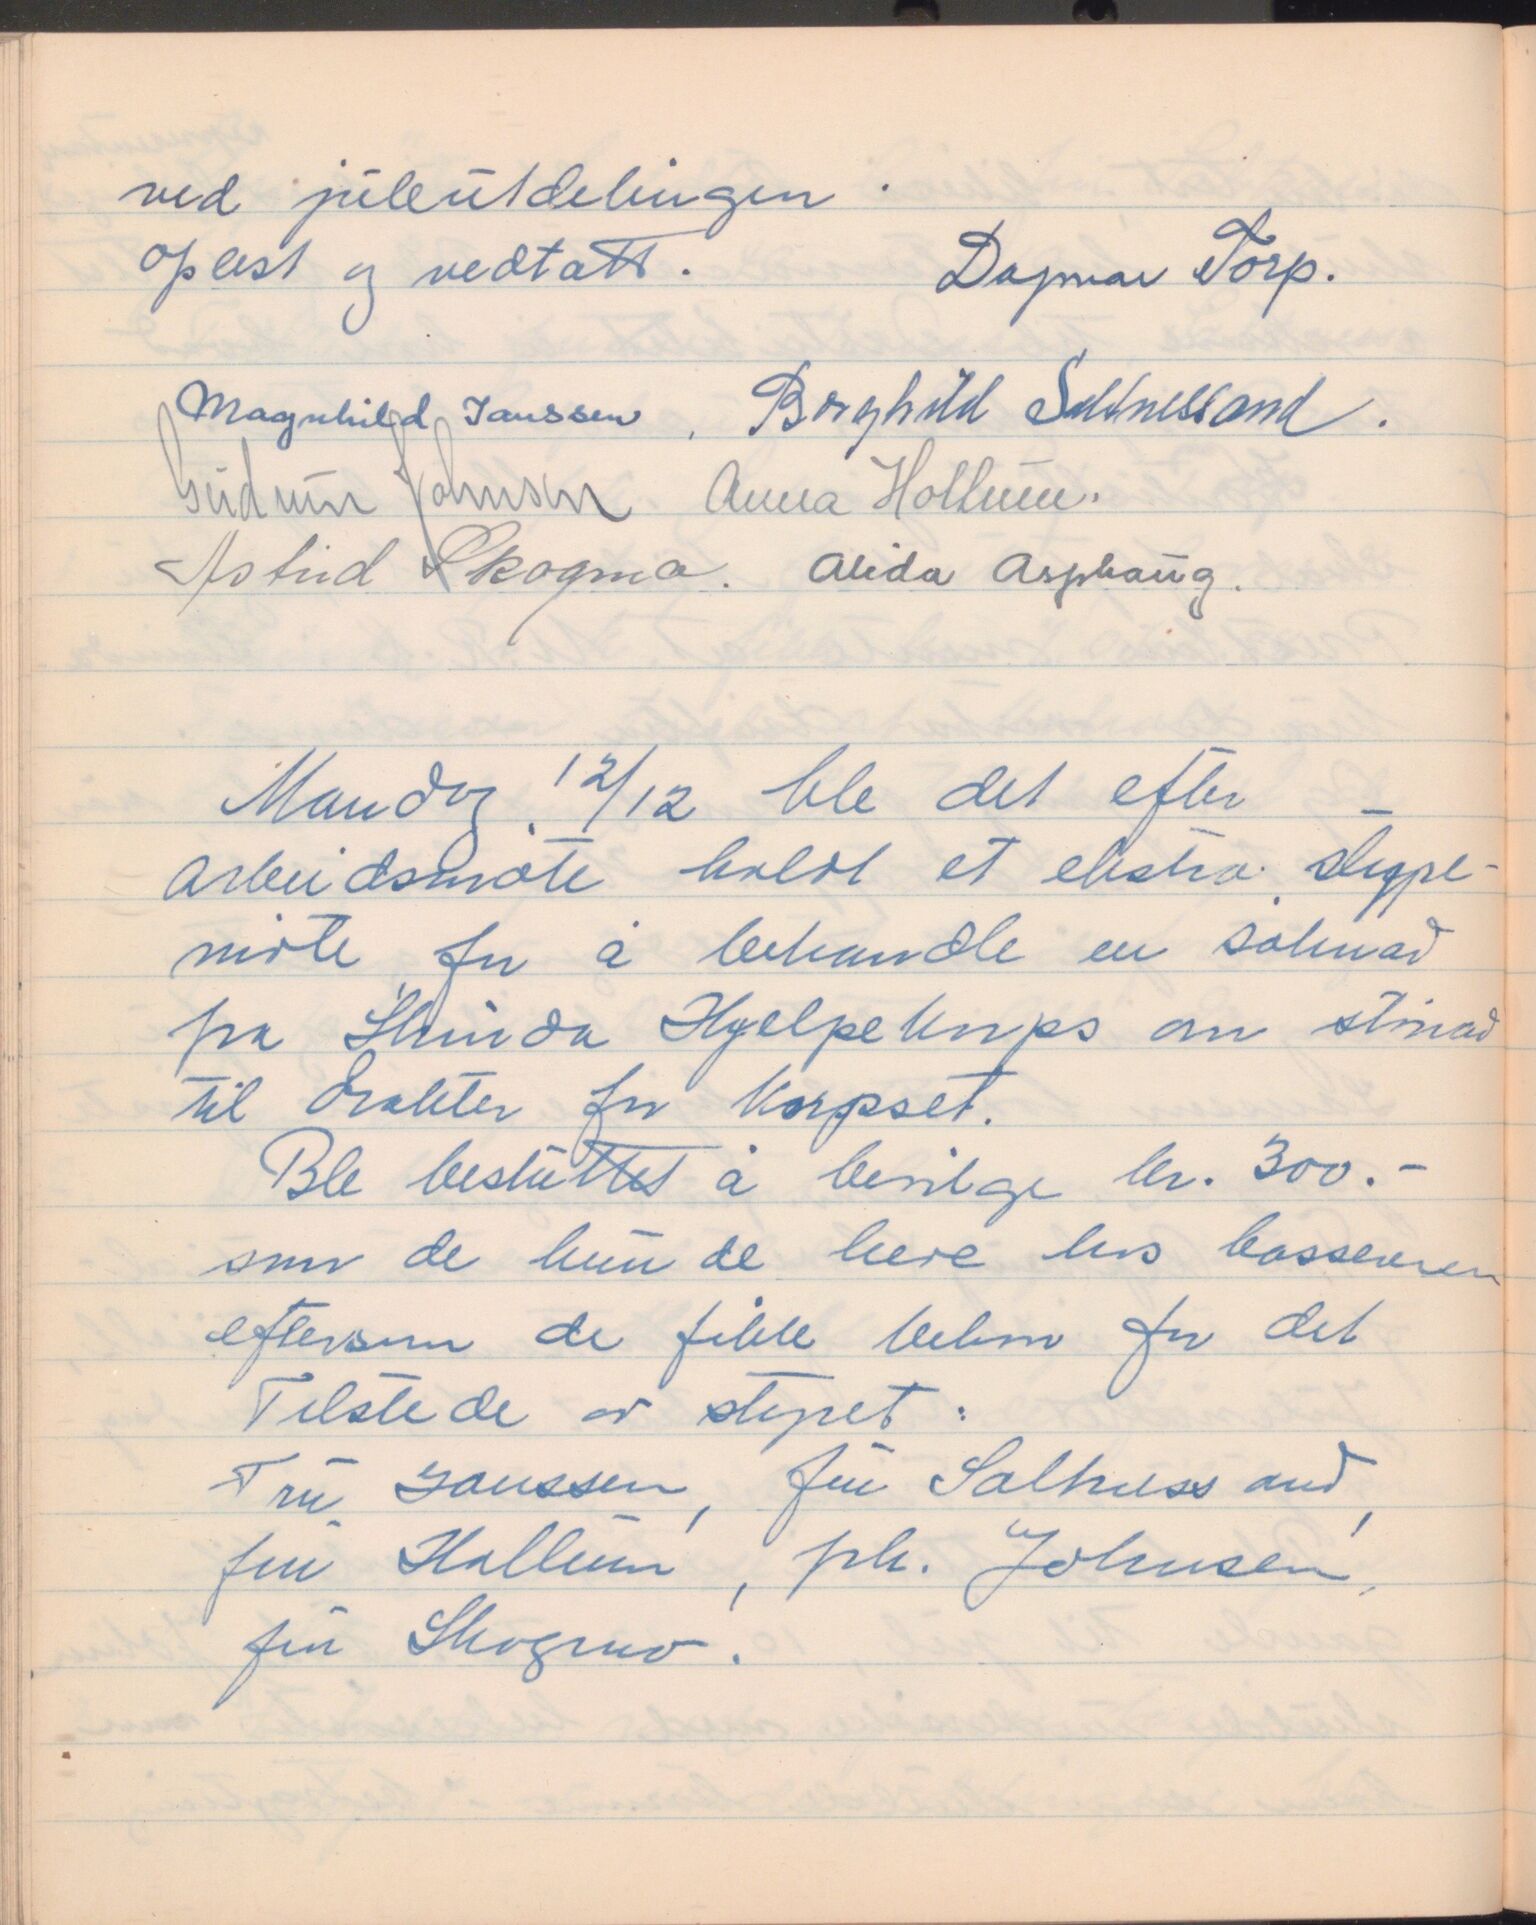 ved juleutdelingen.
oplest og vedtatt. Dagmar Torp.
Magnhild Janssen, Borghild Saltnessand.
Gudrun Johnsen Anna Hollum.
Astrid Skogmo. Alida Asphaug.
Mandag 12/12 ble det efter
arbeidsmøte holdt et ekstra styre-
møte for å behandle en søknad
fra Strinda Hjelpekorps om stønad
til drakter for Korpset.
Ble besluttet å bevilge kr. 300.-
som de kunde heve hos kassereren
eftersom de fikk behov for det
Tilstede av styret:
Fru Janssen, fru Saltnessand,
fru Hollum, frk. Johnsen,
fru Skogmo.